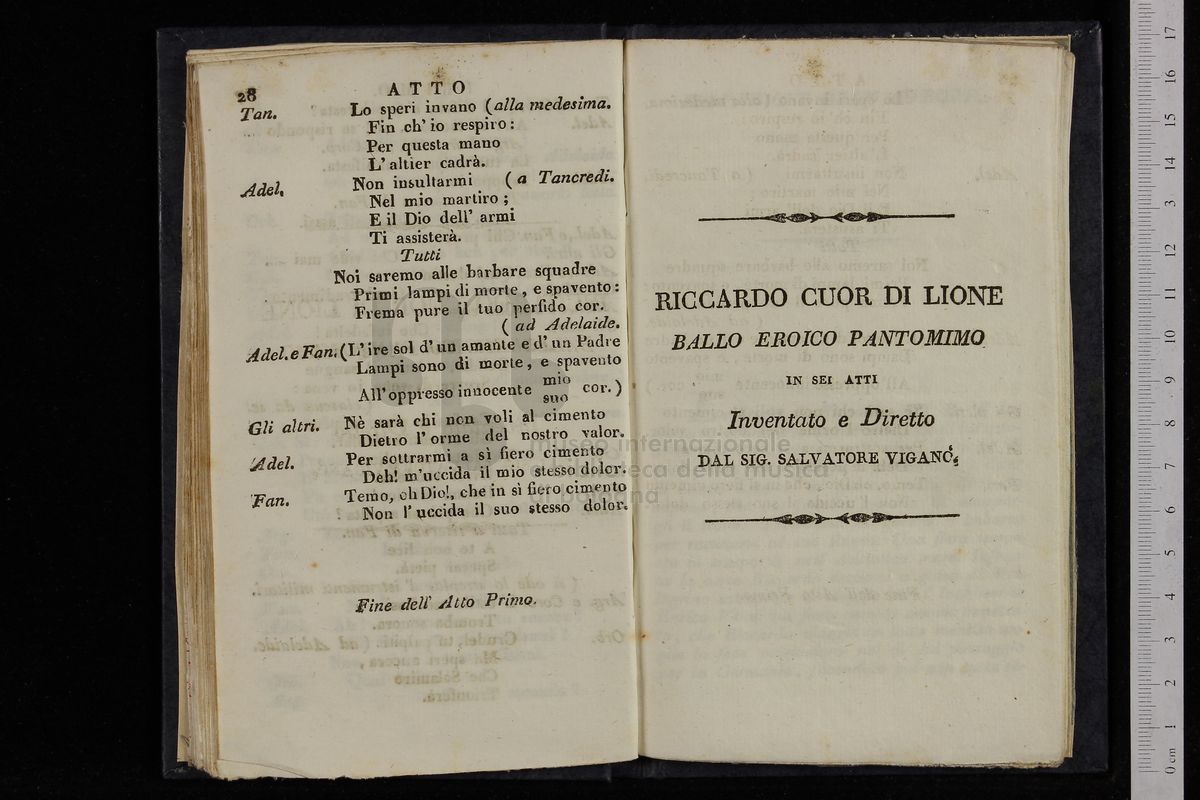 28
ATTO
Tan. Lo speri invano (alla medesima.
Fin ch' io respiro:
Per questa mano
L' altier cadrà.
Adel. Non insultarmi (a Tancredi.
Nel mio martiro;
E il Dio dell' armi
Ti assisterà.
Tutti
Noi saremo alle barbare squadre
Primi lampi di morte, e spavento:
Frema pure il tuo perfido cor.
(ad Adelaide.
Adel. e Fan. (L' ire sol d' un amante e d' un Padre
Lampi sono di morte, e spavento
All' oppresso innocente mio suo cor.)
Gli altri. Nè sarà chi non voli al cimento
Dietro l' orme del nostro valor.
Adel. Per sottrarmi a sì fiero cimento
Deh! m'uccida il mio stesso dolor.
Fan. Temo, oh Dio!, che in sì fiero cimento
Non l' uccida il suo stesso dolor.
Fine dell' Atto Primo.
RICCARDO CUOR DI LIONE
BALLO EROICO PANTOMIMO
IN SEI ATTI
Inventato e Diretto
DAL SIG. SALVATORE VIGANÓ.
museo internazionale
biblioteca della musica
di bologna
0 cm 1 2 3 4 5 6 7 8 9 10 11 12 13 14 15 16 17